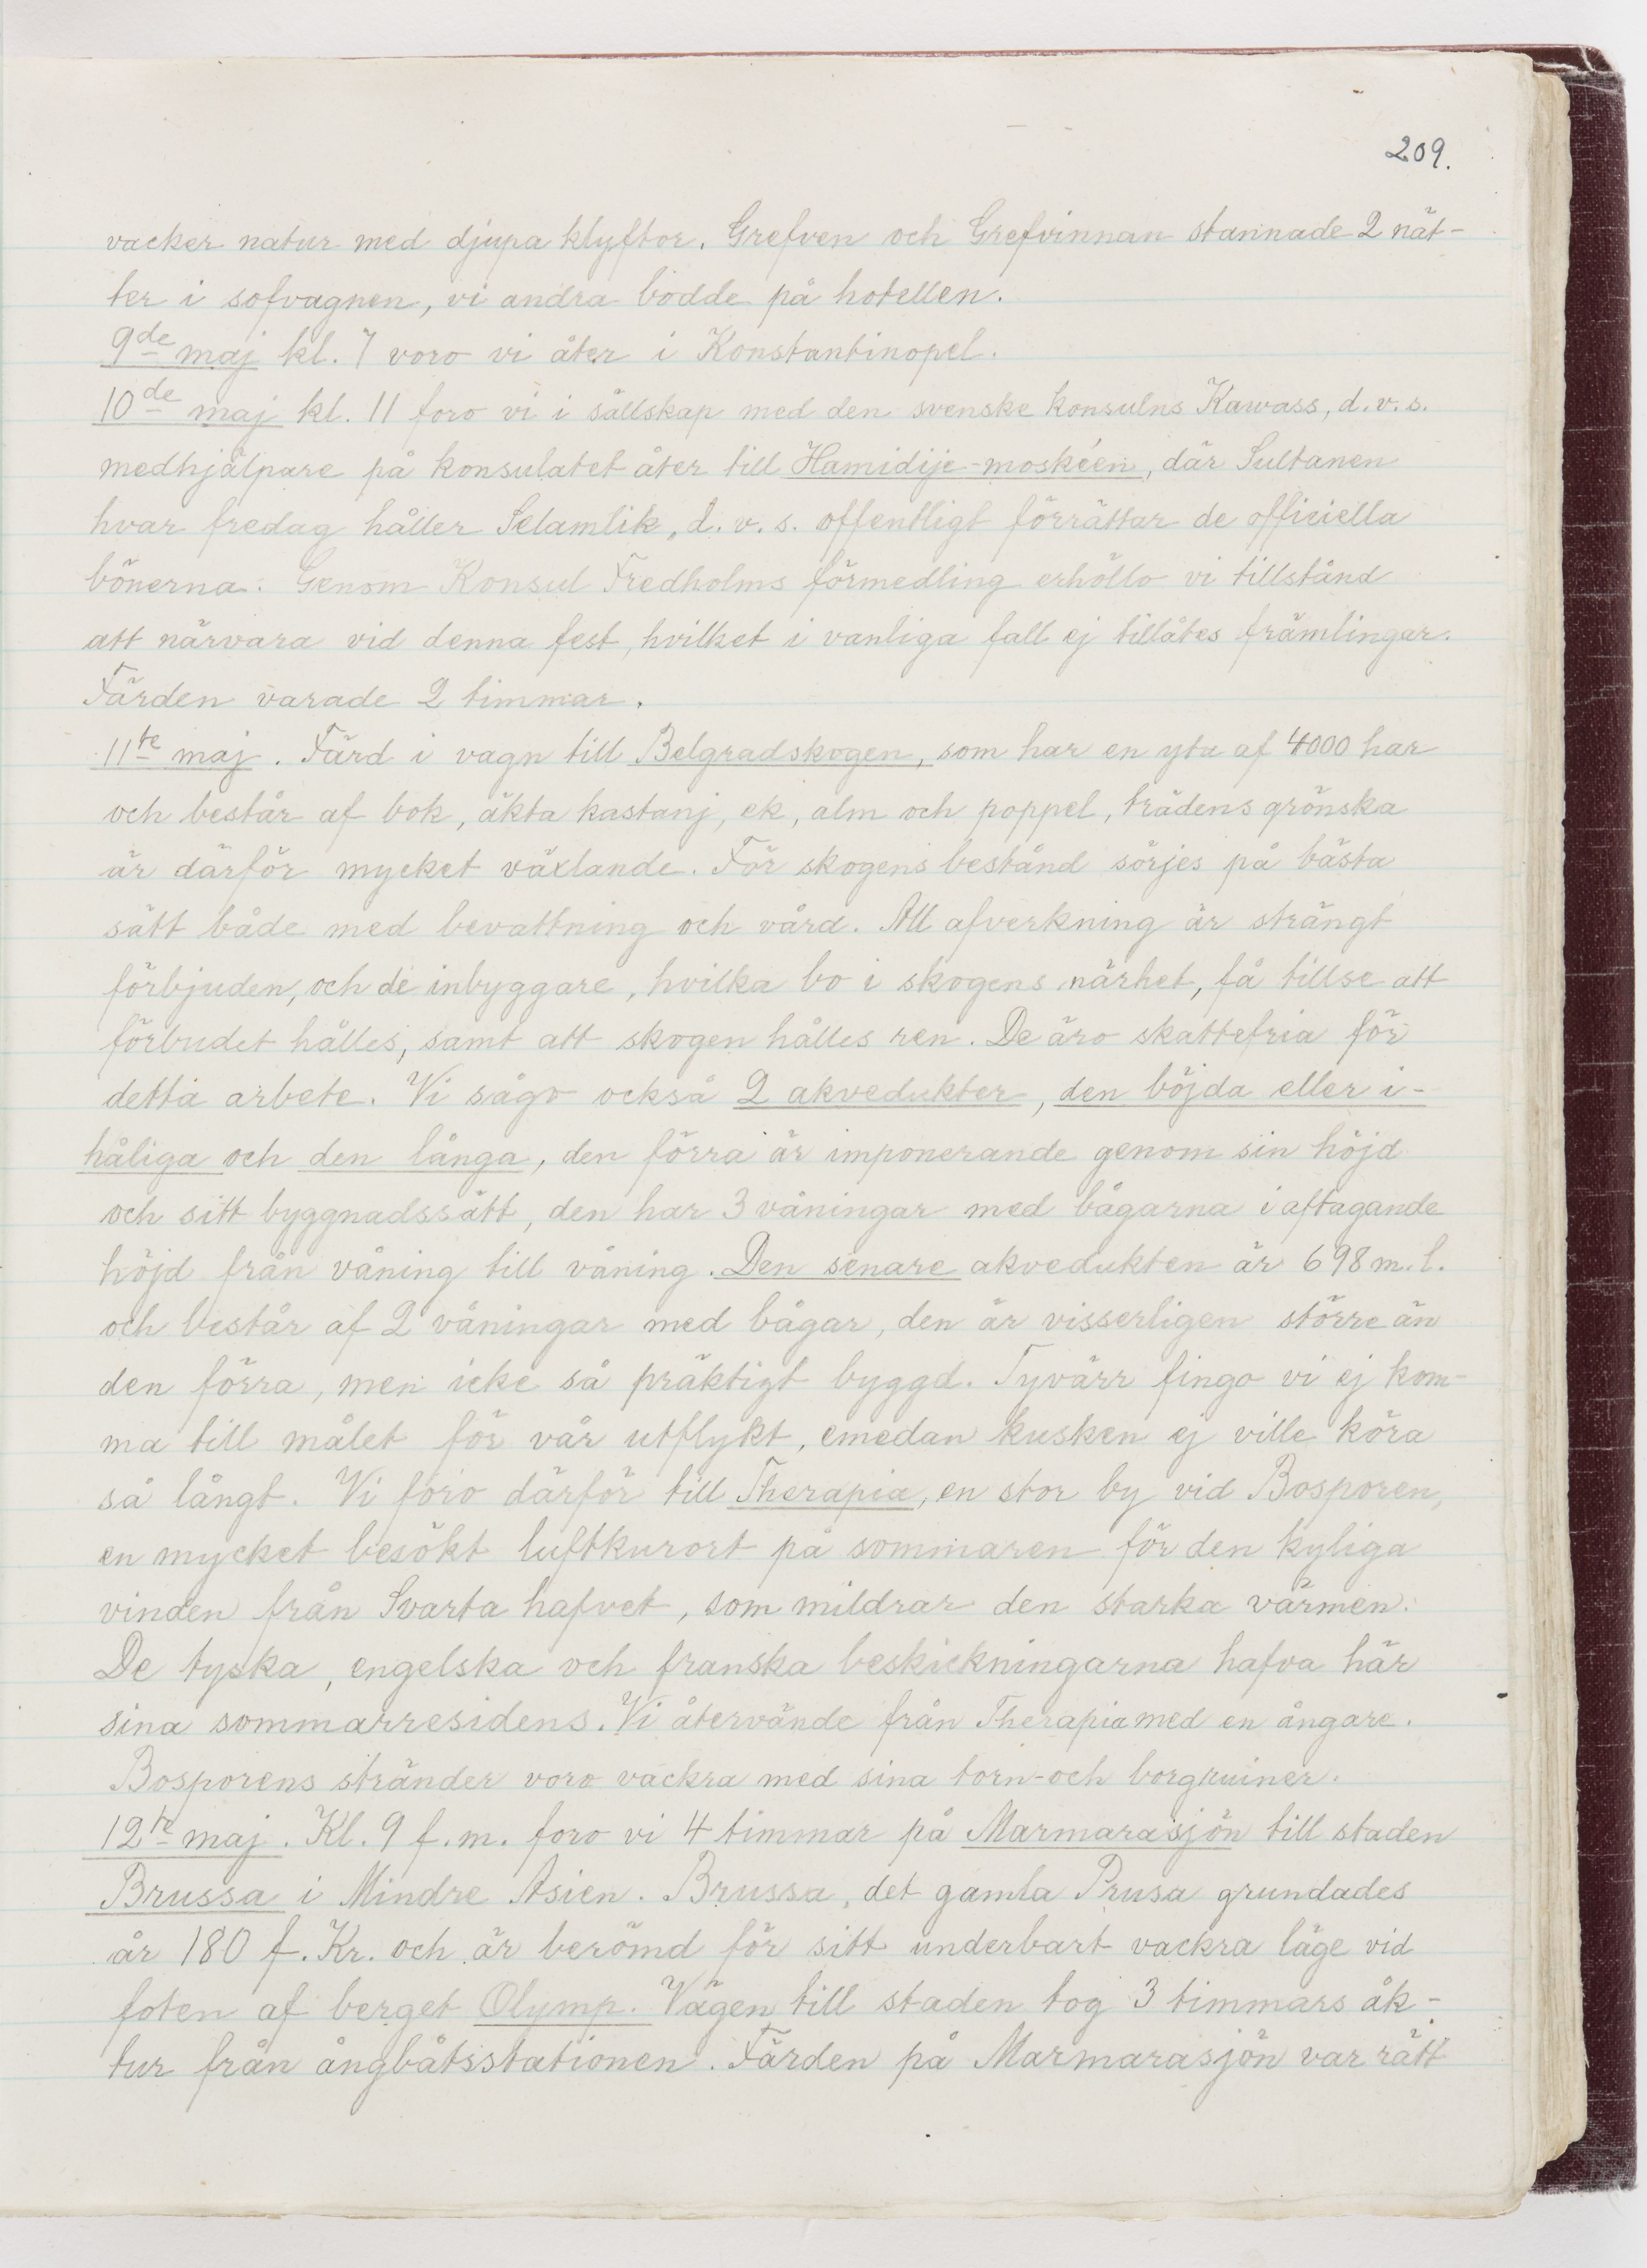 209.
vacker natur med djupa klyftor. Grefven och Grefvinnan stannade 2 nät-
ter i sofvagnen, vi andra bodde på hotellen.
9de maj kl. 7 voro vi åter i Konstantinopel.
10de maj kl. 11 foro vi i sällskap med den svenske konsulns Kawass, d.v.s.
medhjälpare på konsulatet åter till Hamidije-moskéen, där Sultanen
hvar fredag håller Selamlik, d.v.s. offentligt förrättar de officiella
bönerna. Genom Konsul Fredholms förmedling erhöllo vi tillstånd
att närvara vid denna fest, hvilket i vanliga fall ej tillåtes främlingar.
Färden varade 2 timmar.
11te maj. Färd i vagn till Belgradskogen, som har en yta af 4000 har
och består af bok, äkta kastanj, ek, alm och poppel, trädens grönska
är därför mycket växlande. För skogens bestånd sörjes på bästa
sätt både med bevattning och vård. All afverkning är strängt
förbjuden, och de inbyggare, hvilka bo i skogens närhet, få tillse att
förbudet hålles, samt att skogen hålles ren. De äro skattefria för
detta arbete. Vi sågo också 2 akvedukter, den böjda eller i-
håliga och den långa, den förra är imponerande genom sin höjd
och sitt byggnadssätt, den har 3 våningar med bågarna i aftagande
höjd från våning till våning. Den senare akvedukten är 698 m. l.
och består af 2 våningar med bågar, den är visserligen större än
den förra, men icke så präktigt byggd. Tyvärr fingo vi ej kom-
ma till målet för vår utflykt, emedan kusken ej ville köra
så långt. Vi foro därför till Therapia, en stor by vid Bosporen,
en mycket besökt luftkurort på sommaren för den kyliga
vinden från Svarta hafvet, som mildrar den starka värmen.
De tyska, engelska och franska beskickningarna hafva här
sina sommarresidens. Vi återvände från Therapia med en ångare.
Bosporens stränder voro vackra med sina torn- och borgruiner.
12te maj. Kl. 9 f.m. foro vi 4 timmar på Marmarasjön till staden
Brussa i Mindre Asien. Brussa, det gamla Prusa grundades
år 180 f. Kr. och är berömd för sitt underbart vackra läge vid
foten af berget Olymp. Vägen till staden tog 3 timmars åk-
tur från ångbåtsstationen. Färden på Marmarasjön var rätt